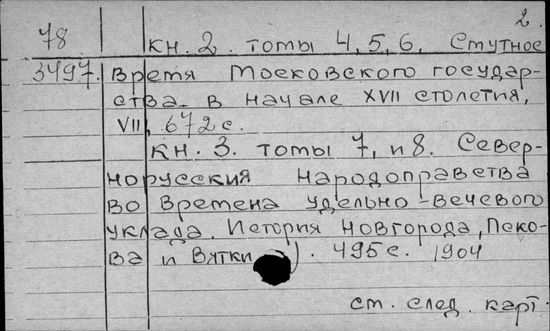 2.
78 кн. 2. томы 4, 5, 6. Смутное
3497. время Московского государ-
ства в начале XVII столетия,
VII, 672 с.
кн. 3. томы 7, и 8. Север-
норусския народоправства
во времена удельно-вечевого
уклада. История Новгорода, Пско-
ва и Вятки). 495 с. 1904
см. след. карт.